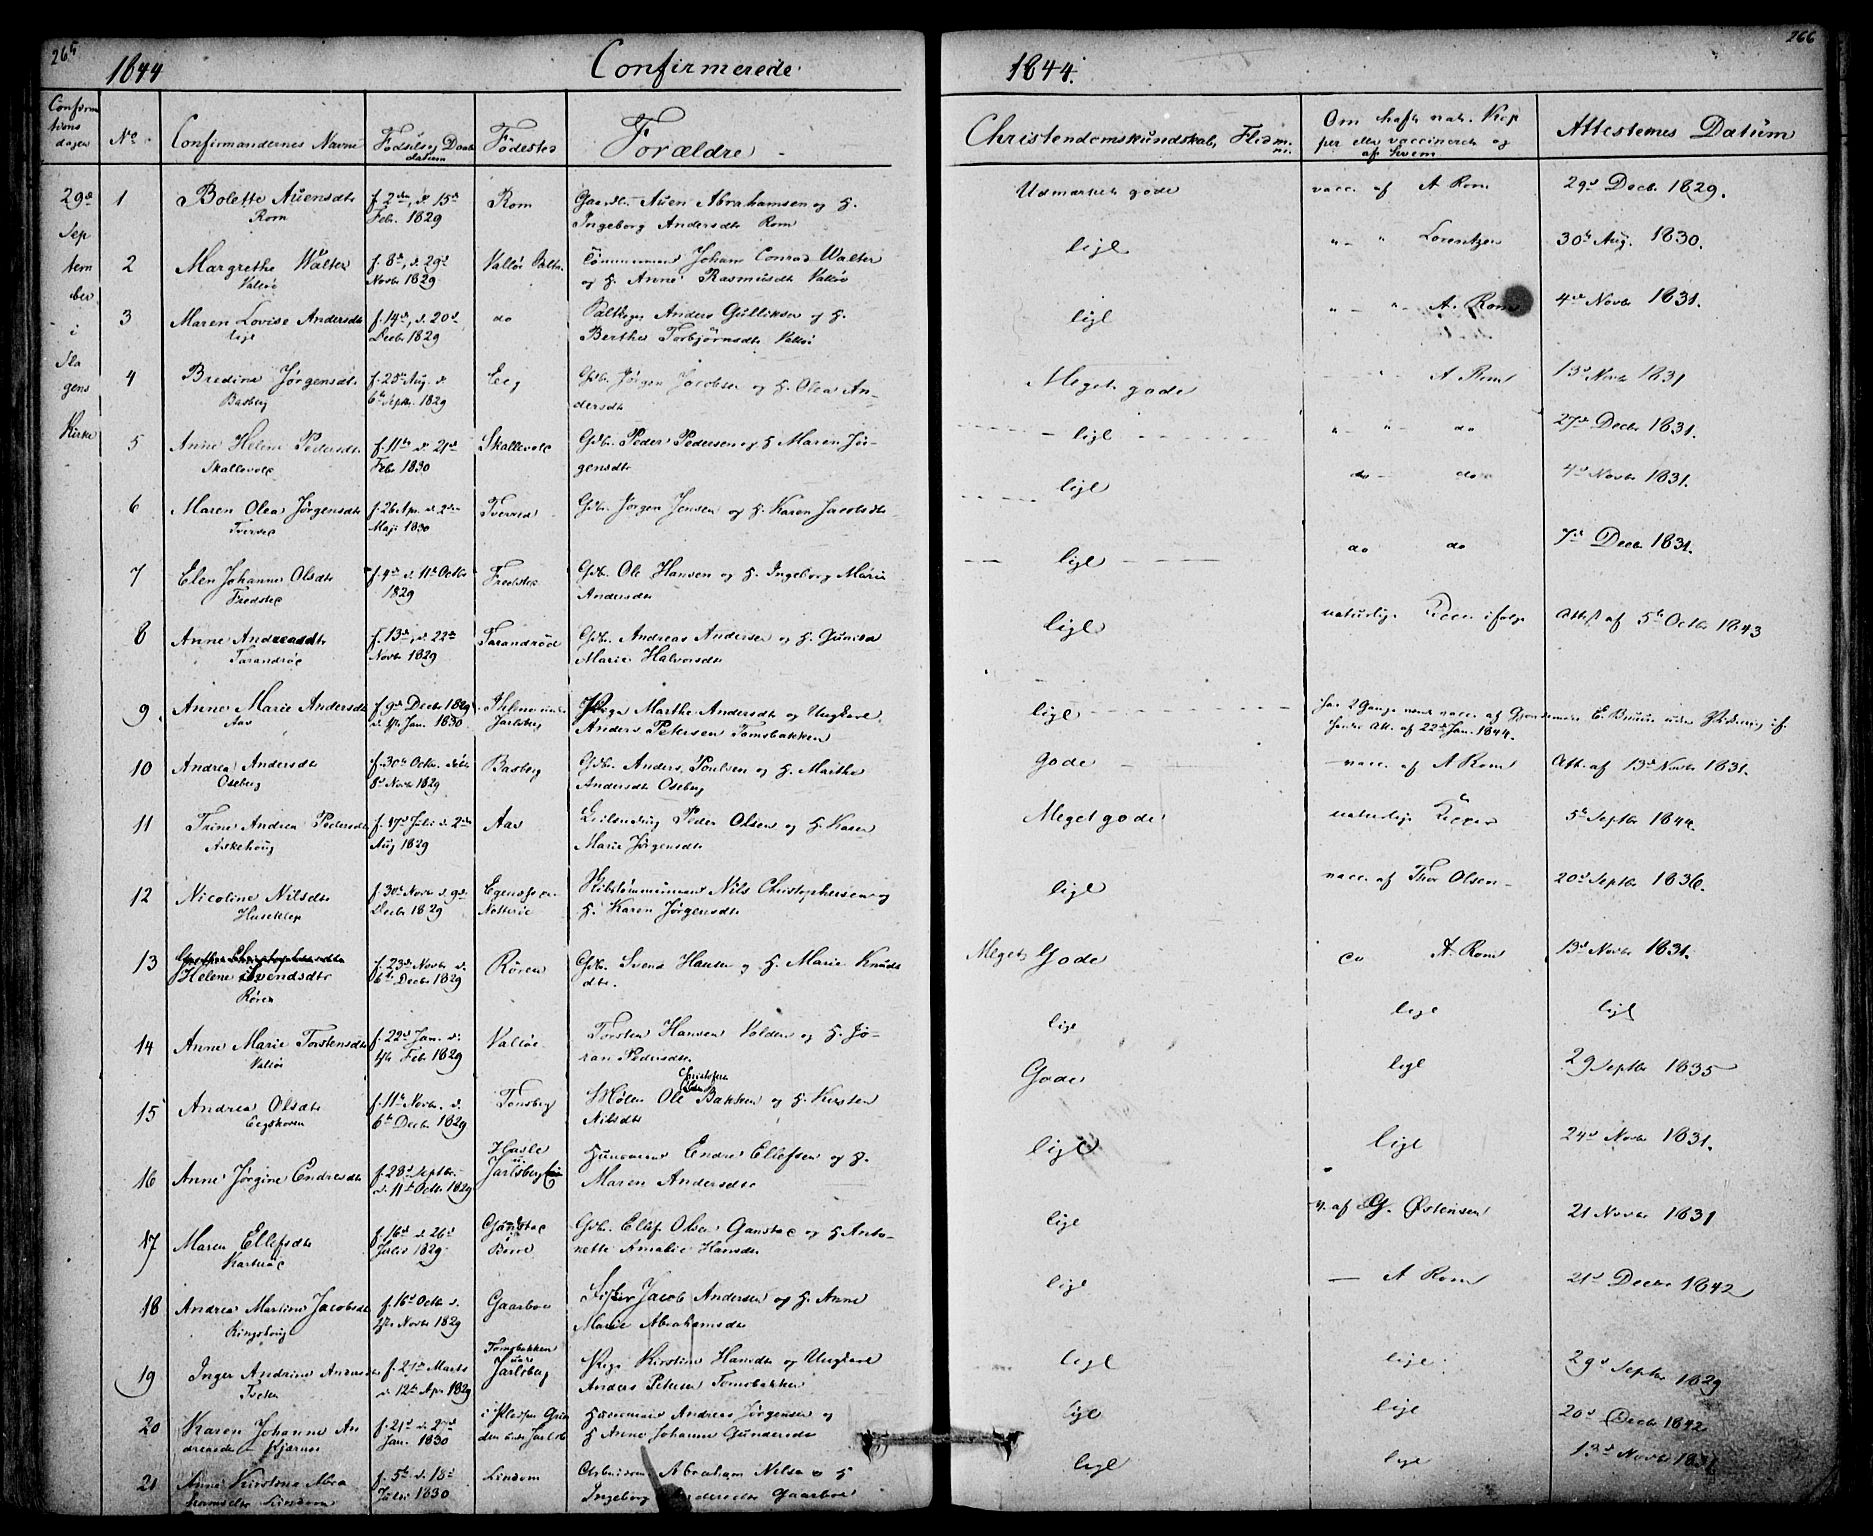 265
1844
Confirmerede
Confirmationsdagen
No
Confirmandernes Navne
Fødsels og Daabsdatum
Fødested
Forældre
29de September i Slagens Kirke
1 Bolette Auensdtr Rom
f. 2den, d. 15de Febr. 1829
Rom
Gaardbr. Auen Abrahamsen og H.
Ingeborg Andersdtr Rom
2 Margrethe Walter Valløe
f. 8de, d. 29de Novbr 1829
Valløe Saltv.
Tømmermand Johan Conrad Walter
og H. Anne Rasmusdtr Valløe
3 Maren Lovise Andersdtr lige
f. 14de, d. 20de Decbr 1829
do
Anders Gulliksen og H.
Berthe Torbjørnsdtr Valløe
4 Bredine Jørgensdtr Basberg
f. 25de Aug. d. 6te Septbr. 1829
Eeg
Gdbr. Jørgen Jacobsen og H. Olea An-
dersdtr
5 Anne Helene Pedersdtr Skallevold
f. 11te, d. 21de Febr 1830
Skallevold
Gdbr. Peder Pedersen og H. Maren Jør-
gensdtr
6 Maren Olea Jørgensdtr Tverved
f. 26 Apr. d. 2den Maji 1830
Tverved
Gdbr. Jørgen Jensen og H. Karen Jacobsdtr
7 Elen Johanne Olsdtr Fredsted
f. 4de d. 11te Octbr 1829
Fredsted
Gdbr. Ole Hansen og H. Ingeborg Marie
Andersdtr
8 Anne Andreasdtr Tarandrød
f. 13de, d. 22de Novbr 1829
Tarandrød
Gdbr. Andreas Andersen og H. Gunild
Marie Halvorsdtr
9 Anne Marie Andersdtr Aas
f. 9de Decbr 1829 d. 1ste Jan. 1830
Jarlsberg
Pige Marthe Andersdtr og Ungkarl
Anders Petersen Tomsbakken
10 Andrea Andersdtr Oseberg
f. 30te Octbr. døbt 8de Novbr 1829
Basberg
Gdbr. Anders Poulsen og H. Marthe
Andersdtr Oseberg
11 Trine Andrea Pedersdtr Askehoug
f. 17de Julii d. 2den Aug 1829
Aas
Peder Olsen og H. Karen
Marie Jørgensdtr
12 Nicoline Nilsdtr Huseklep
f. 30te Novbr d. 9de Decbr 1829
Nøtterøe
Skibstømmermand Nils Christophersen og
H. Karen Jørgensdtr
13 Helene Svendsdtr Røren
f. 23de Novbr d. 6te Decbr 1829
Røren
Gdbr. Svend Hansen og H. Marie Knuds
dtr.
14 Anne Marie Torstensdtr Valløe
f. 22de Jan. d. 1ste Febr 1829
Valløe
Torsten Hansen Volden og H. Jo-
ran Pedersdtr
15 Andrea Olsdtr Eegskoven
f. 11te Novbr. d. 6te Decbr 1829
Tønsberg
Ole Christofersen Bakken og H. Kirsten
Nilsdtr
16 Anne Jørgine Endresdtr
f. 28de Septbr. d. 11te Octbr 1829
Hasle u. Jarlsberg
Huusmand Endre Ellefsen og H.
Maren Andersdtr
17 Maren Ellefsdtr
f. 16de d. 26de Julii 1829
Ganstad
Gdbr. Ellef Olsen Ganstad og H. Anto-
nette Amalie Hansdtr
18 Andrea Martine Jacobsdtr Ringshoug
f. 16de Octbr d. 1ste Novbr 1829
Gaarboe
Fisker Jacob Andersen og H. Anne
Marie Abrahamsdtr
19 Inger Andrine Andersdtr Tveten
f. 21de Marts d. 12te Apr 1829
Tomsbakken under Jarlsberg
Pige Kirstine Hansdtr og Ungkarl
Anders Petersen Tomsbakken
20 Karen Johanne An
dreasdtr Kjærnes
f. 21de d. 27de Jan. 1830
Huusmand Andreas Jørgensen og
H. Anne Johanne Gundersdtr
21 Anne Kirstine Abra
hamsdtr Lindom
f. 5te d. 18de Julii 1830
Lindom
Abraham Nilsen og H
Ingeborg Andersdtr Gaarboe
266
1844.
Christendomskundskab, Flid m. m.
Om havft nat. Kop
per eller vaccinerede og
af hvem
Attesternes Datum
Udmærket gode
vacc. af A Rom
29de Decbr 1829.
lige
" - " Lorentzen
30te Aug. 1830.
lige
" - " A. Rom
4de Novbr 1831.
Meget gode
" A Rom
13de Novbr 1831
lige
" - " do
27de Decbr 1831.
lige
do - do
4de Novbr 1831.
lige
do do
7de Decbr 1831.
lige
naturlige Kopper ifølge
Att. af 5te Octbr 1843
lige
har 2 Gange været vacc. af E. Bruun
Att. af 22de Jan. 1844.
Gode
vacc. af A Rom
Att. af 13de Novbr 1831.
Meget gode
naturlige Kopper
5te Septbr 1844.
lige
vacc. af Thor Olsen
20de Septbr 1836.
Meget Gode
do A. Rom
13de Novbr 1831.
lige
lige
lige
Gode
lige
29 Septbr 1835
lige
lige
24de Novbr 1831.
lige
v. af G. Østensen
21 Novbr 1831
lige
— A Rom
21de Decbr 1842
lige
lige
29de Septbr 1829
lige
lige
20de Decbr 1842
lige
lige
13de Novbr 1831